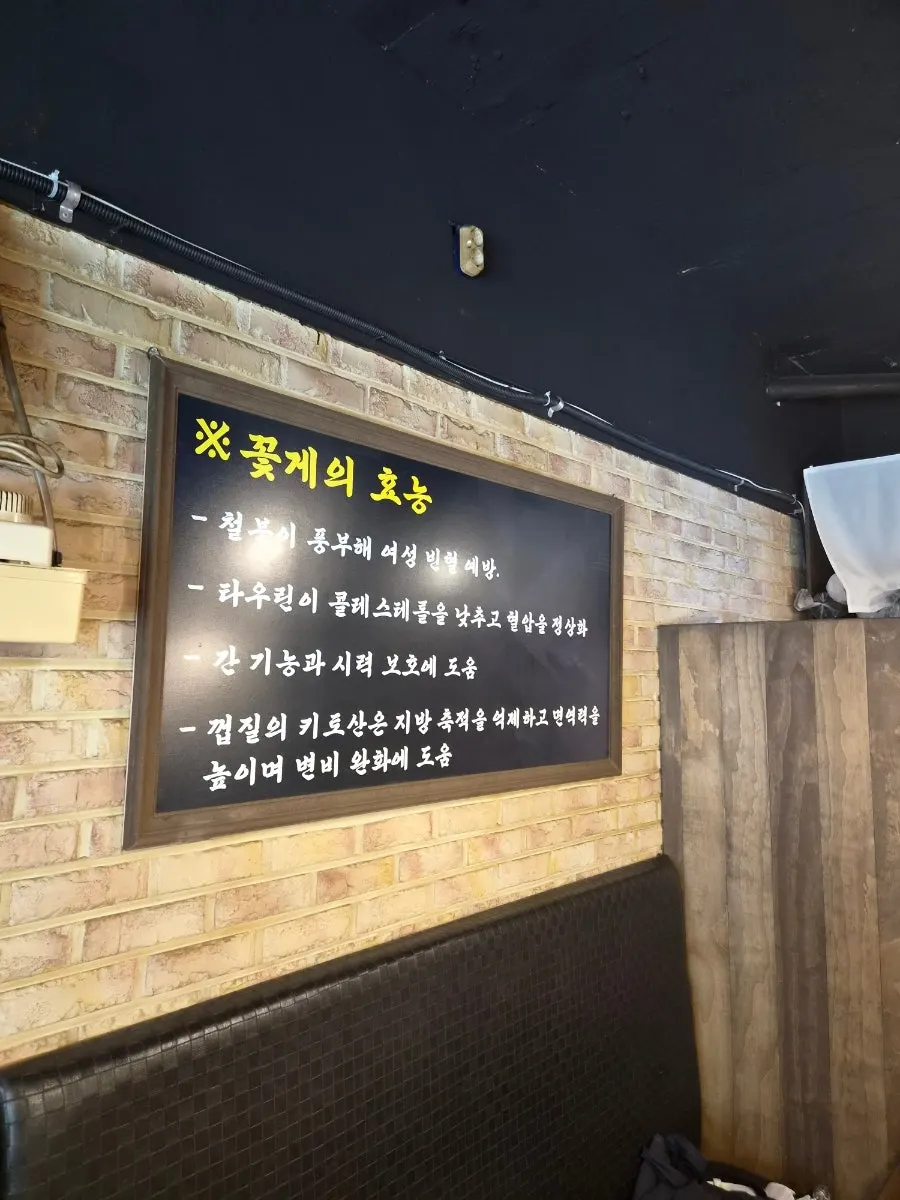 ※ 꽃게의 효능
- 철분이 풍부해 여성 빈혈 예방.
- 타우린이 콜테스테롤을 낮추고 혈압을 정상화
- 간 기능과 시력 보호에 도움
- 껍질의 키토산은 지방 축적을 억제하고 면역력을
높이며 변비 완화에 도움